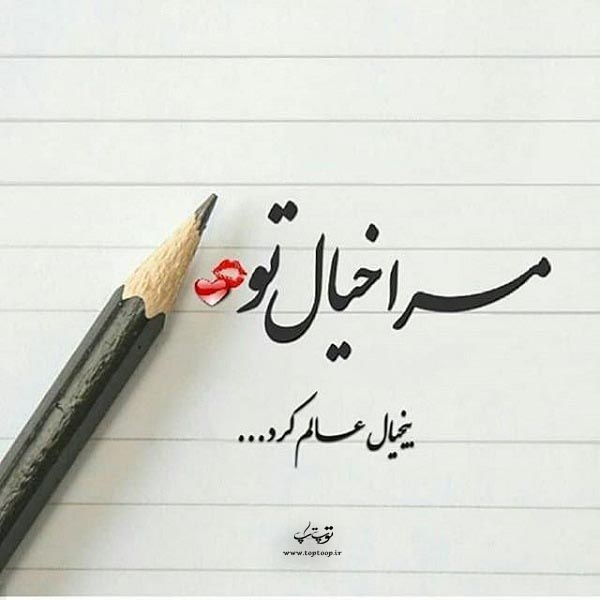 مرا خیال تو
بیخیال عالم کرد...
توپ تاپ
www.toptoop.ir